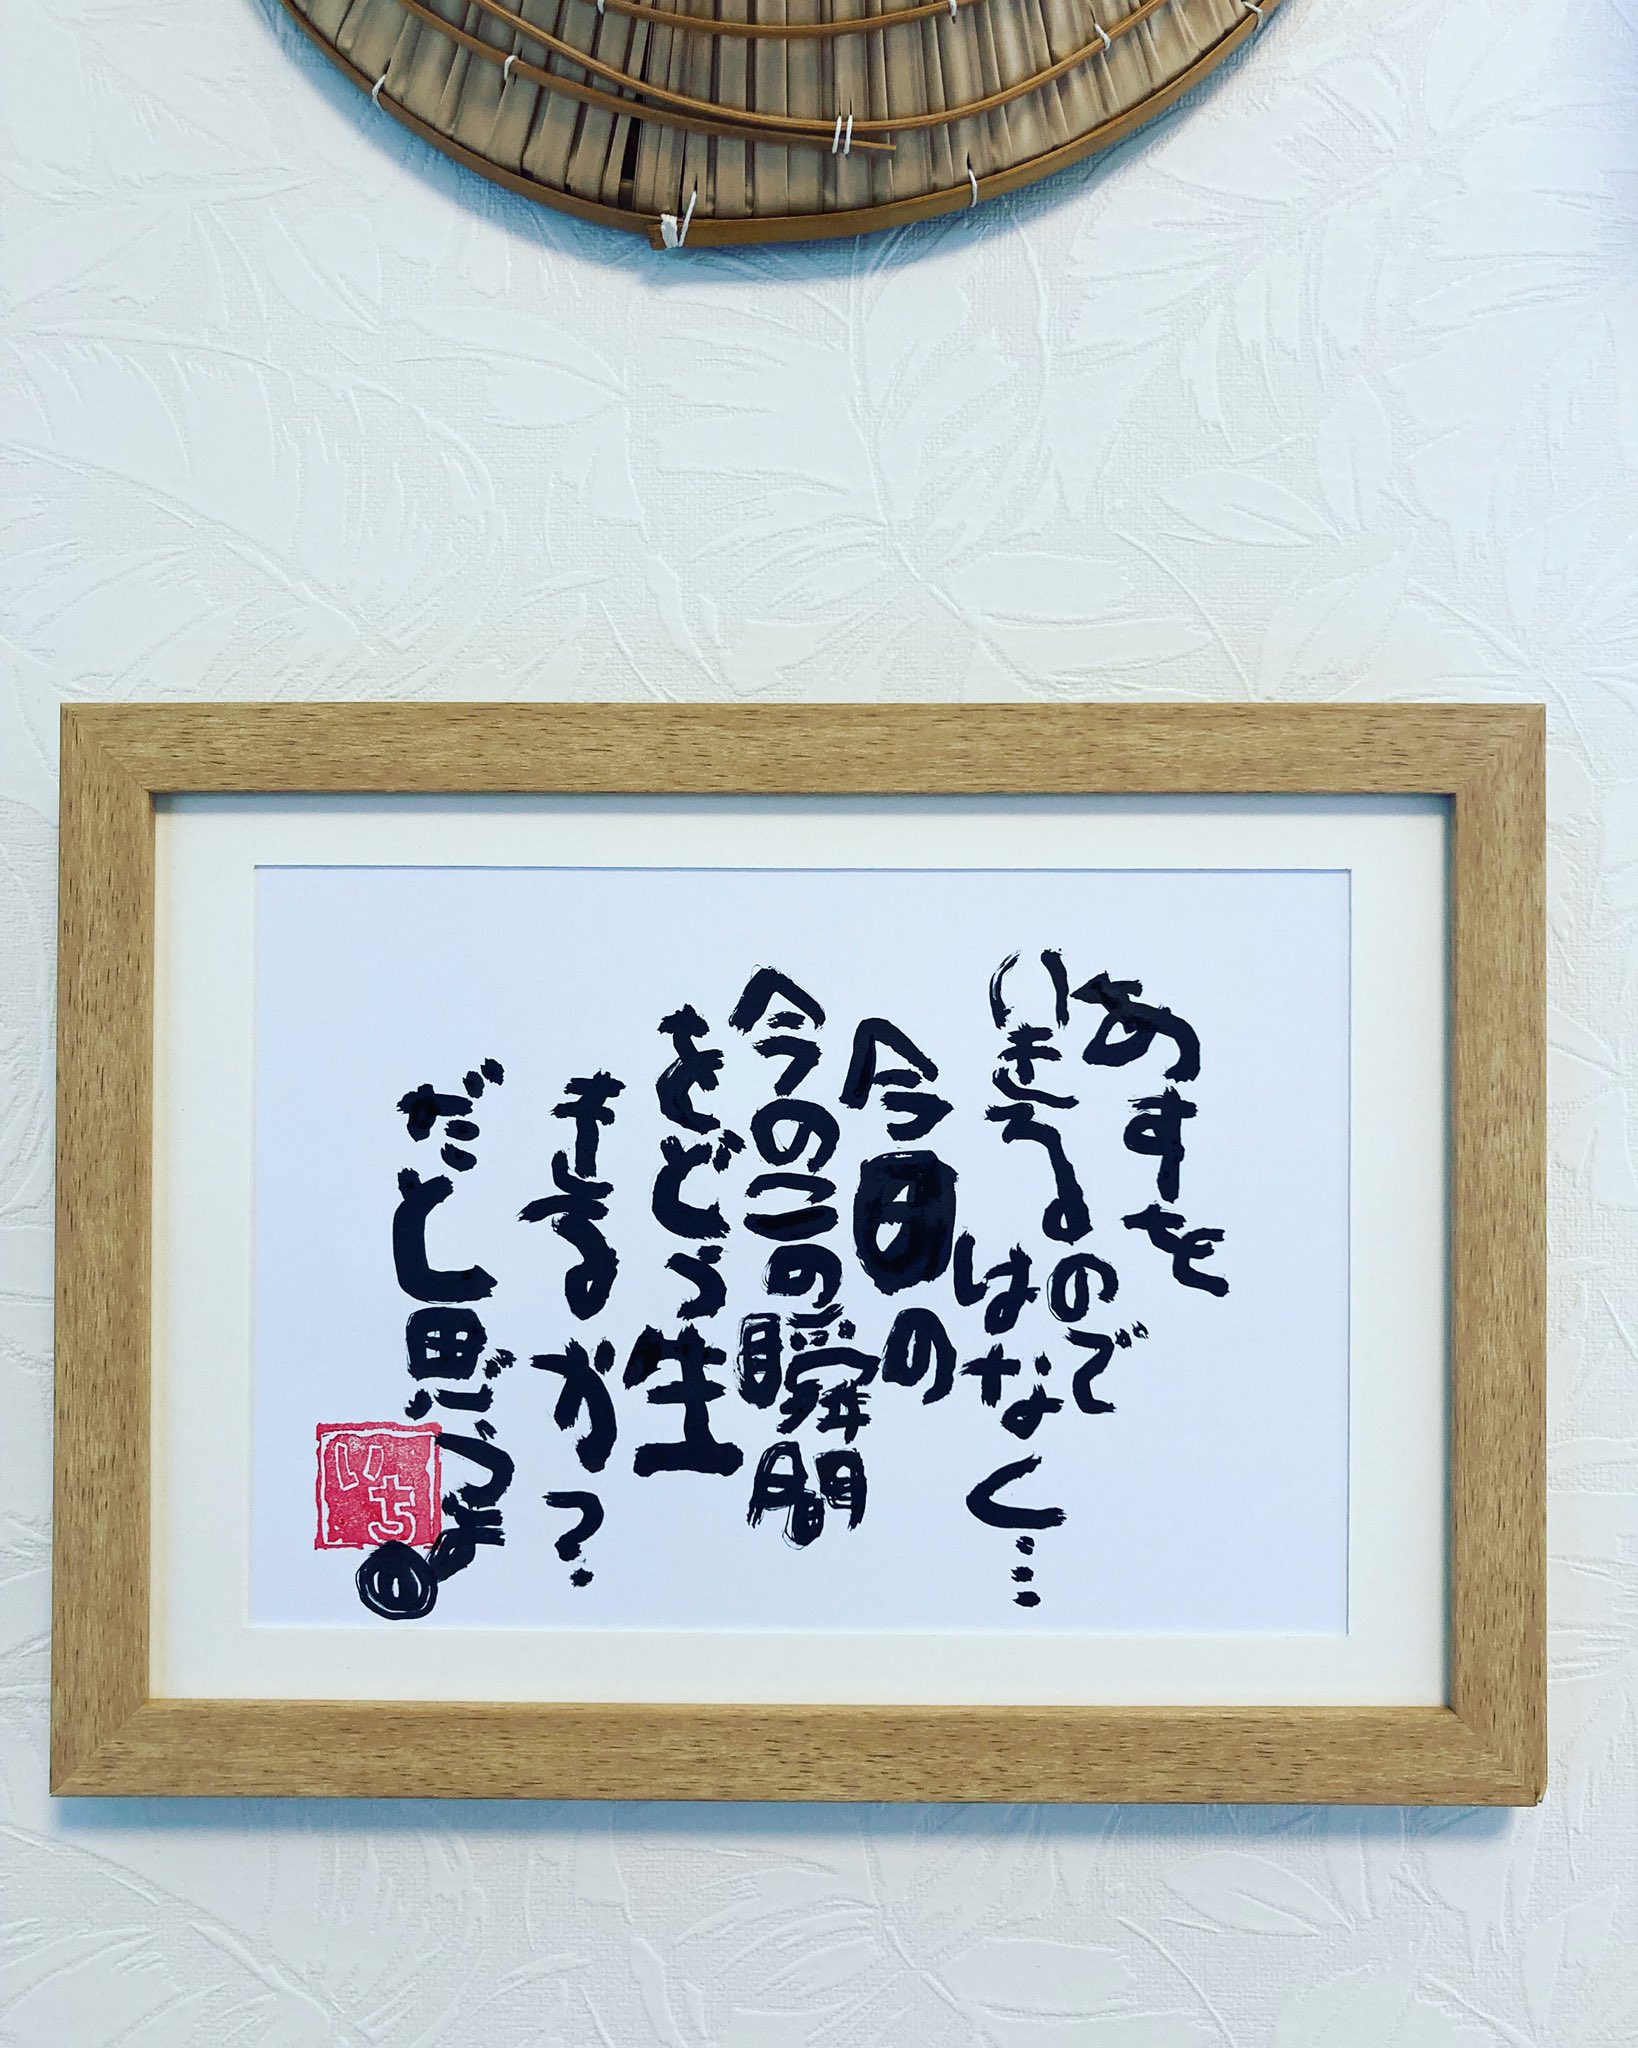 あすを
いきるのではなく…
今日の
今この瞬間
をどう生
きるか？
だと思うよ。
いち